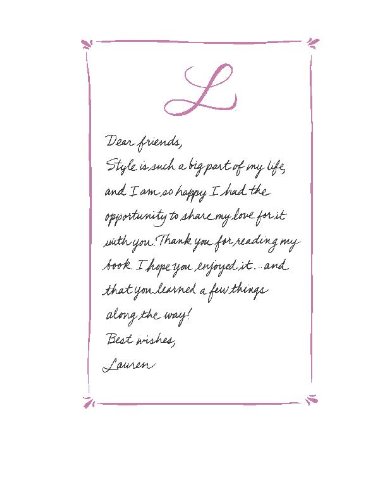 L
Dear friends,
Style is such a big part of my life,
and I am so happy I had the
opportunity to share my love for it
with you. Thank you for reading my
book. I hope you enjoyed it...and
that you learned a few things
along the way!
Best wishes,
Lauren